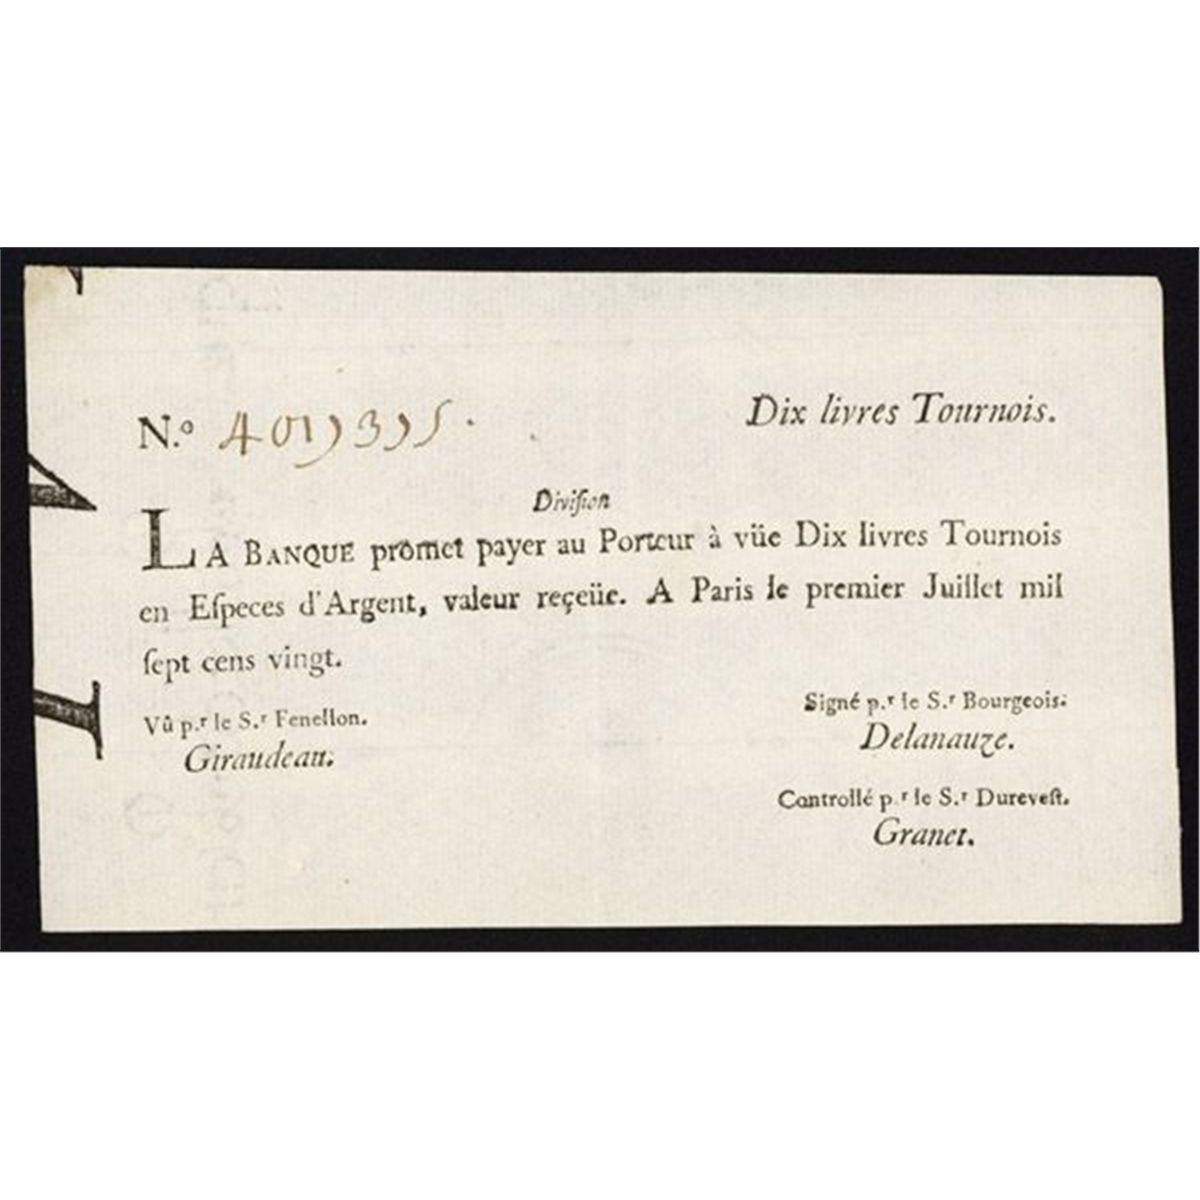 N.º 4019395.
Dix livres Tournois.
Diviſion
LA BANQUE promet payer au Porteur à vüe Dix livres Tournois
en Eſpeces d'Argent, valeur reçeüe. A Paris le premier Juillet mil
ſept cens vingt.
Vû p.r le S.r Fenellon.
Giraudeau.
Signé p.r le S.r Bourgeois.
Delanauze.
Controllé p.r le S.r Dureveſt.
Granet.